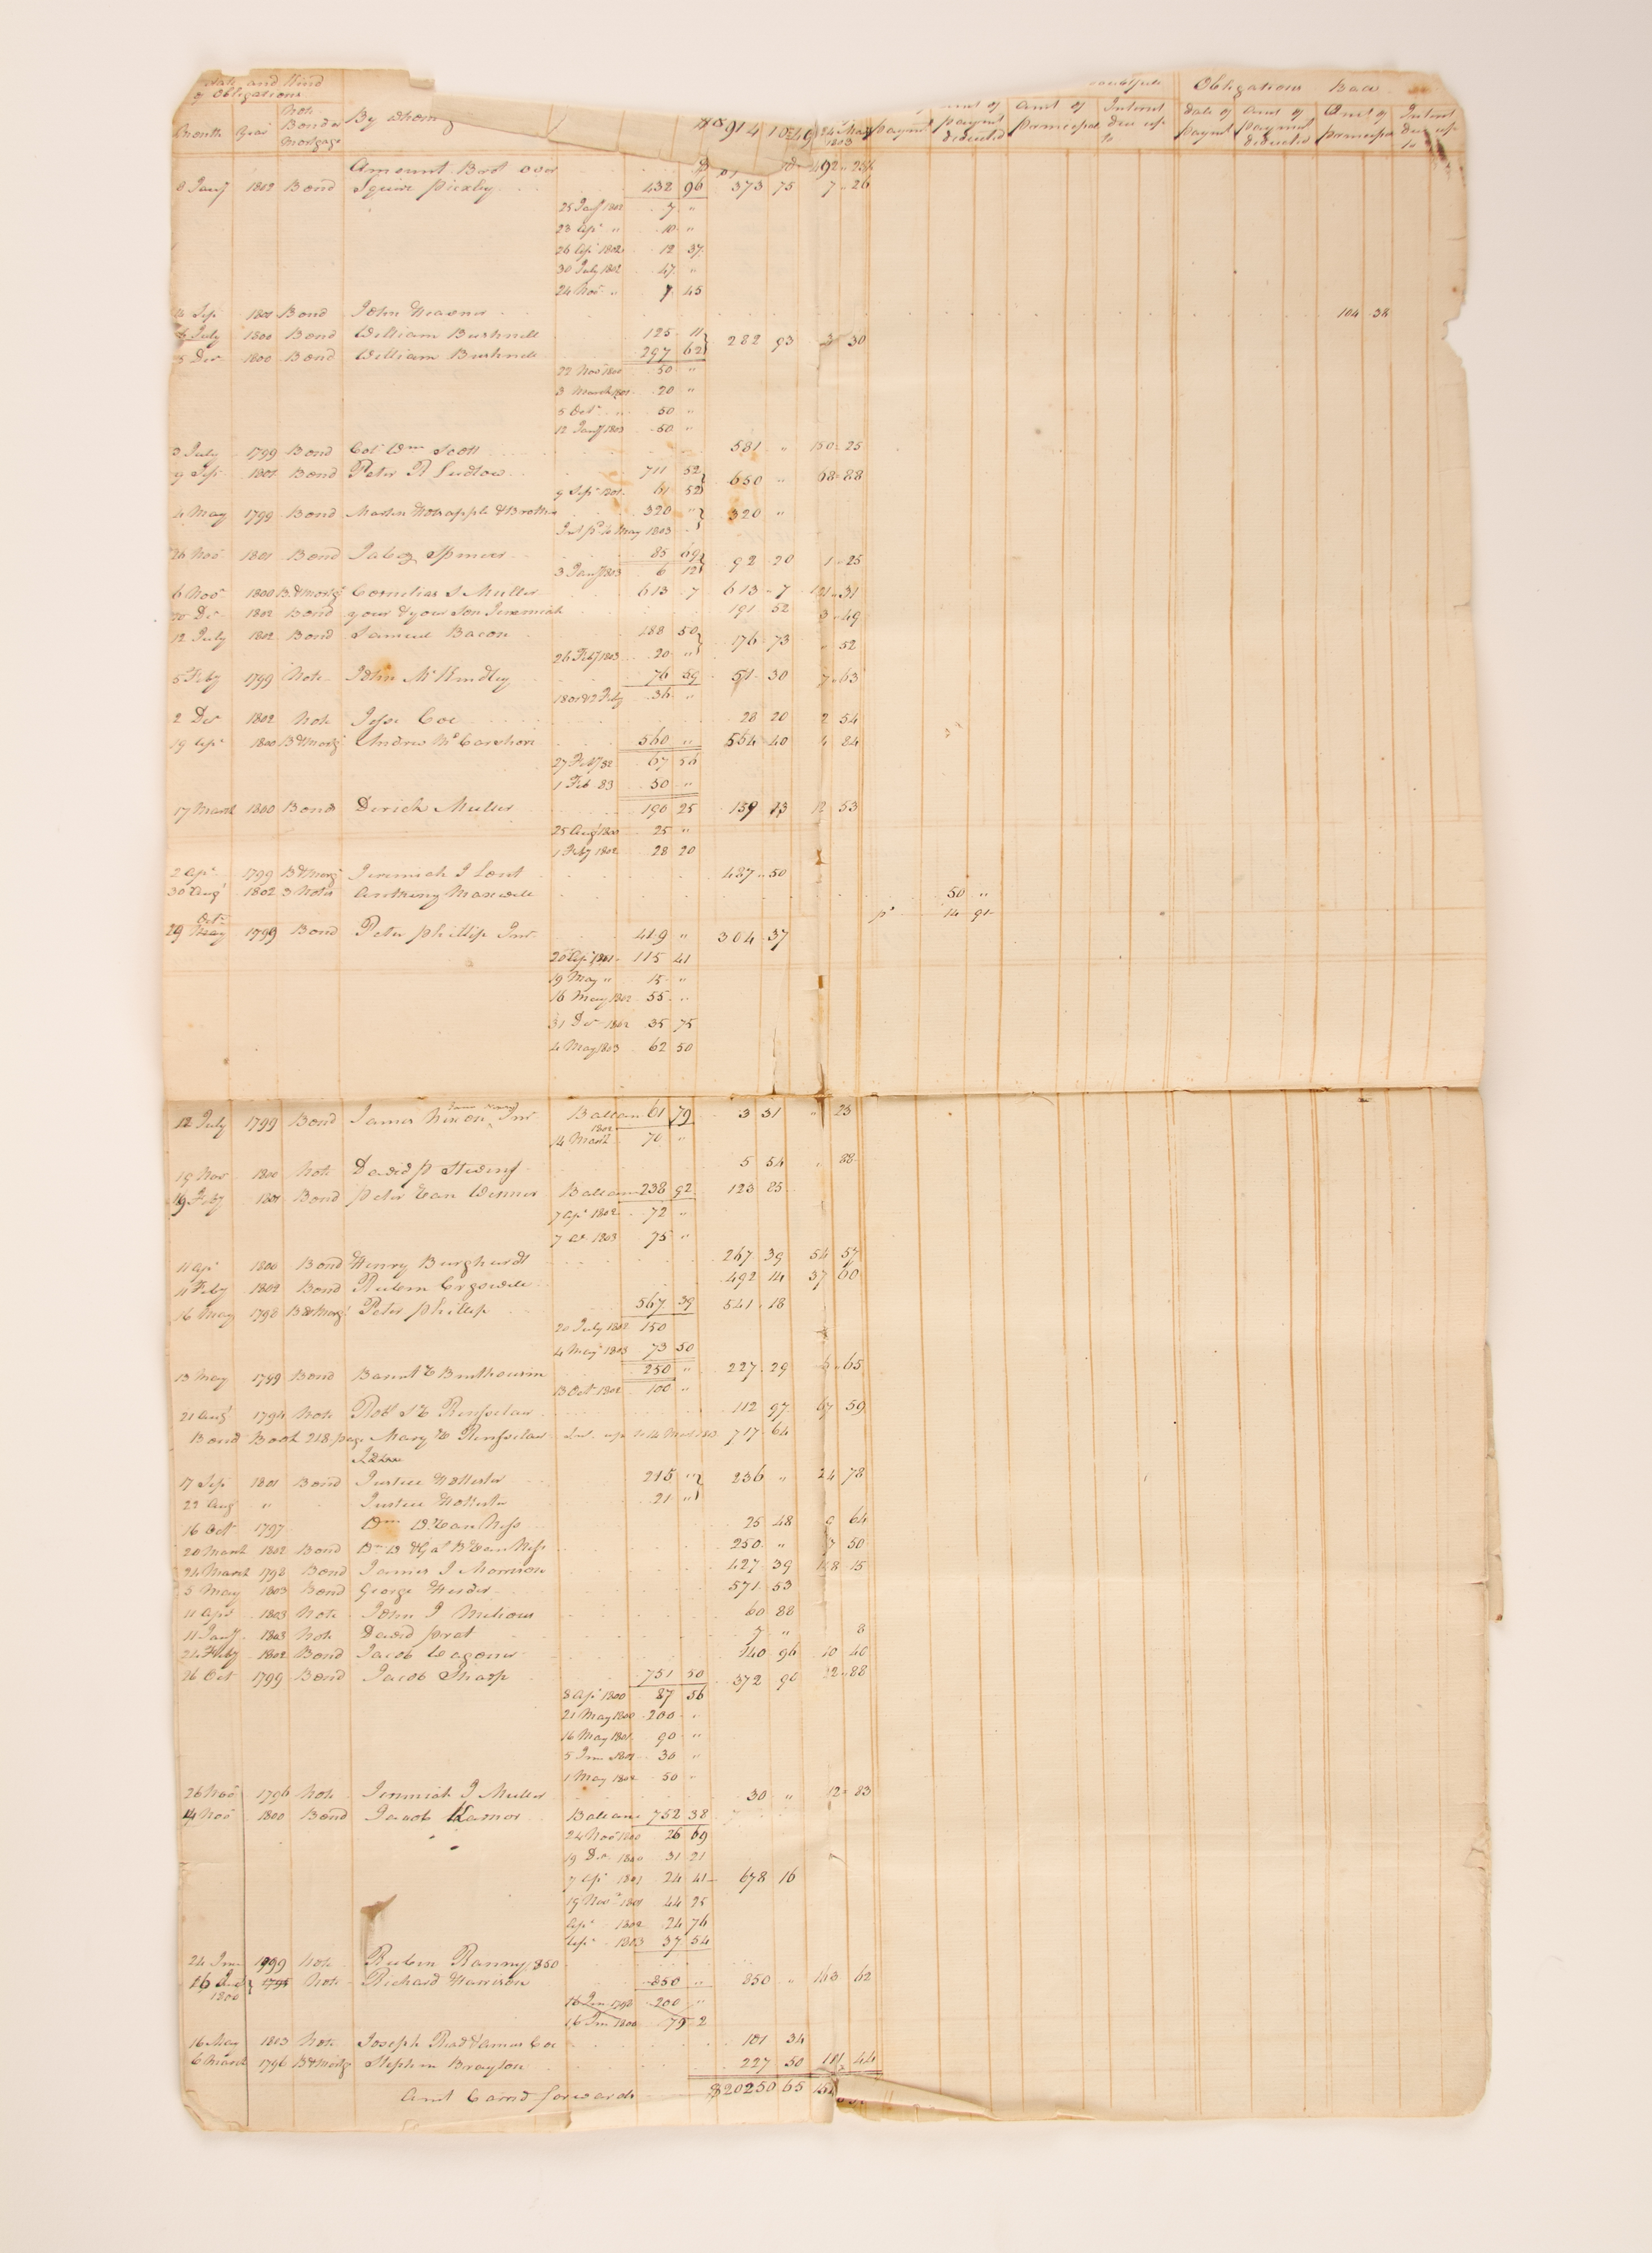 Date and Kind of Obligations
doubtfull Obligations Bad
Month Year Note Bond or Mortgage By whom 24 May 1803 payment amt of paymt deducted amt of principal Interest due up to date of paymt amt of paymt deducted amt of principal Interest due up to
Amount Brot over
8 Jany 1802 Bond Squire Pixley 432 96 373 75 7 26
25 Jany 1802 7 "
23 Apl " 10 "
26 Apl 1802 12 37
30 July 1802 47 "
24 Nov " 7 45
Sep 1801 Bond John 104 38
July 1800 Bond William Bushnell 125 11 282 93 30
5 Der 1800 Bond William Bushnell 297 62
22 Nov 1800 50 "
3 March 1801 20 "
5 Oct " 50 "
12 Jany 1803 50 "
3 July 1799 Bond Col Wm Scott 581 " 150 25
9 Sep 1801 Bond Peter R Ludlow 711 52 650 " 68 88
9 Sep 1801 61 52
4 May 1799 Bond Martin Hotsapple & Brother 320 " 320 "
Int pd to May 1803
26 Nov 1801 Bond Jabez Spencer 85 69 92 20 1 25
3 Jany 1803 6 12
6 Nov 1800 Bd & Mortg Cornelius S Muller 613 7 613 7 121 31
20 Dr 1802 Bond your & your Son Jeremiah 191 52 3 49
12 July 1802 Bond Samuel Bacon 188 50 176 73 " 52
26 Feby 1803 20 "
5 Feby 1799 Note John McKindley 76 59 51 30 7 63
36 "
2 Der 1802 Note Jesse Coe 28 20 2 54
19 Apl 1800 Bd & Mortg Andrew 560 " 554 40 4 84
27 Feby 67 56
1 Feb 50 "
17 March 1800 Bond Derick Muller 190 25 159 13 12 53
25 Aug 25 "
1 Feby 1802 28 20
2 Apl 1799 Bd & Mortg Jeremiah J Lont 487 50
30 Augt 1802 3 Notes Anthony Maxwell 50 "
pd 14 91
29 Octr 1799 Bond Peter Phillip Junr 419 " 304 37
20 Apl 1801 115 41
19 May " 15 "
16 May 1802 55 "
31 Der 1802 35 75
4 May 1803 62 50
12 July 1799 Bond James Nixon Junr Ballance 61 79 3 31 " 23
14 March 1802 70 "
19 Nov 1800 Note David P 5 54 " 88
19 Feby 1801 Bond Peter Van Wenner Ballance 238 92 123 25
7 Apl 1802 72 "
7 do 1803 75 "
11 Apl 1800 Bond Henry Burghardt 267 39 54 57
11 Feby 1802 Bond Reubem 492 14 37 60
16 May 1798 Bd & Mortg Peter Phillip 567 39 541 18
20 July 1802 150
4 May 1803 73 50
13 May 1799 Bond 250 " 227 29 6 65
13 Oct 1802 100 "
21 Augt 1794 Note Robt S V Renselaer 112 97 67 59
Bond Book 218 page Mary V Renselaer 717 64
17 Sep 1801 Bond Justice Hollister 215 " 236 " 24 78
22 Aug " Justice Hollister 21 "
16 Oct 1797 Wm W Van Ness 25 48 9 64
20 March 1802 Bond Wm W & Gat B Van Ness 250 " 50
24 March 1798 Bond James J Morrison 427 39 15
5 May 1803 Bond George 571 53
11 Apl 1803 Note John J Milious 60 88
11 Jany 1803 Note David Prat 7 " 8
24 Feby 1802 Bond Jacob Vagoner 140 96 10 40
26 Oct 1799 Bond Jacob Sharp 751 50 372 90 88
8 Apl 1800 87 56
21 May 1800 200 "
16 May 1801 90 "
5 Jun 1801 30 "
1 May 1802 50
26 Nov 1796 Note Jeremiah J Muller 30 " 12 83
14 Nov 1800 Bond Jacob Ballance 752 38
24 Nov 1800 26 69
19 Dr 1800 31 21
7 Apl 1801 24 41 678 16
19 Nov 1801 44 25
Apl 1802 24 76
Apl 1803 37 54
24 Jun 1799 Note Reuben Ranny 350
16 1800 1795 Note Richard Harrison 850 " 850 " 163 62
16 Jun 1798 200 "
16 Jun 1800 79 2
16 May 1803 Note Joseph Rad & Amos Coe 101 34
6 March 1796 Bd & Mortg Stephen Brayton 227 50 44
Amt Carrd forwards $20250 65